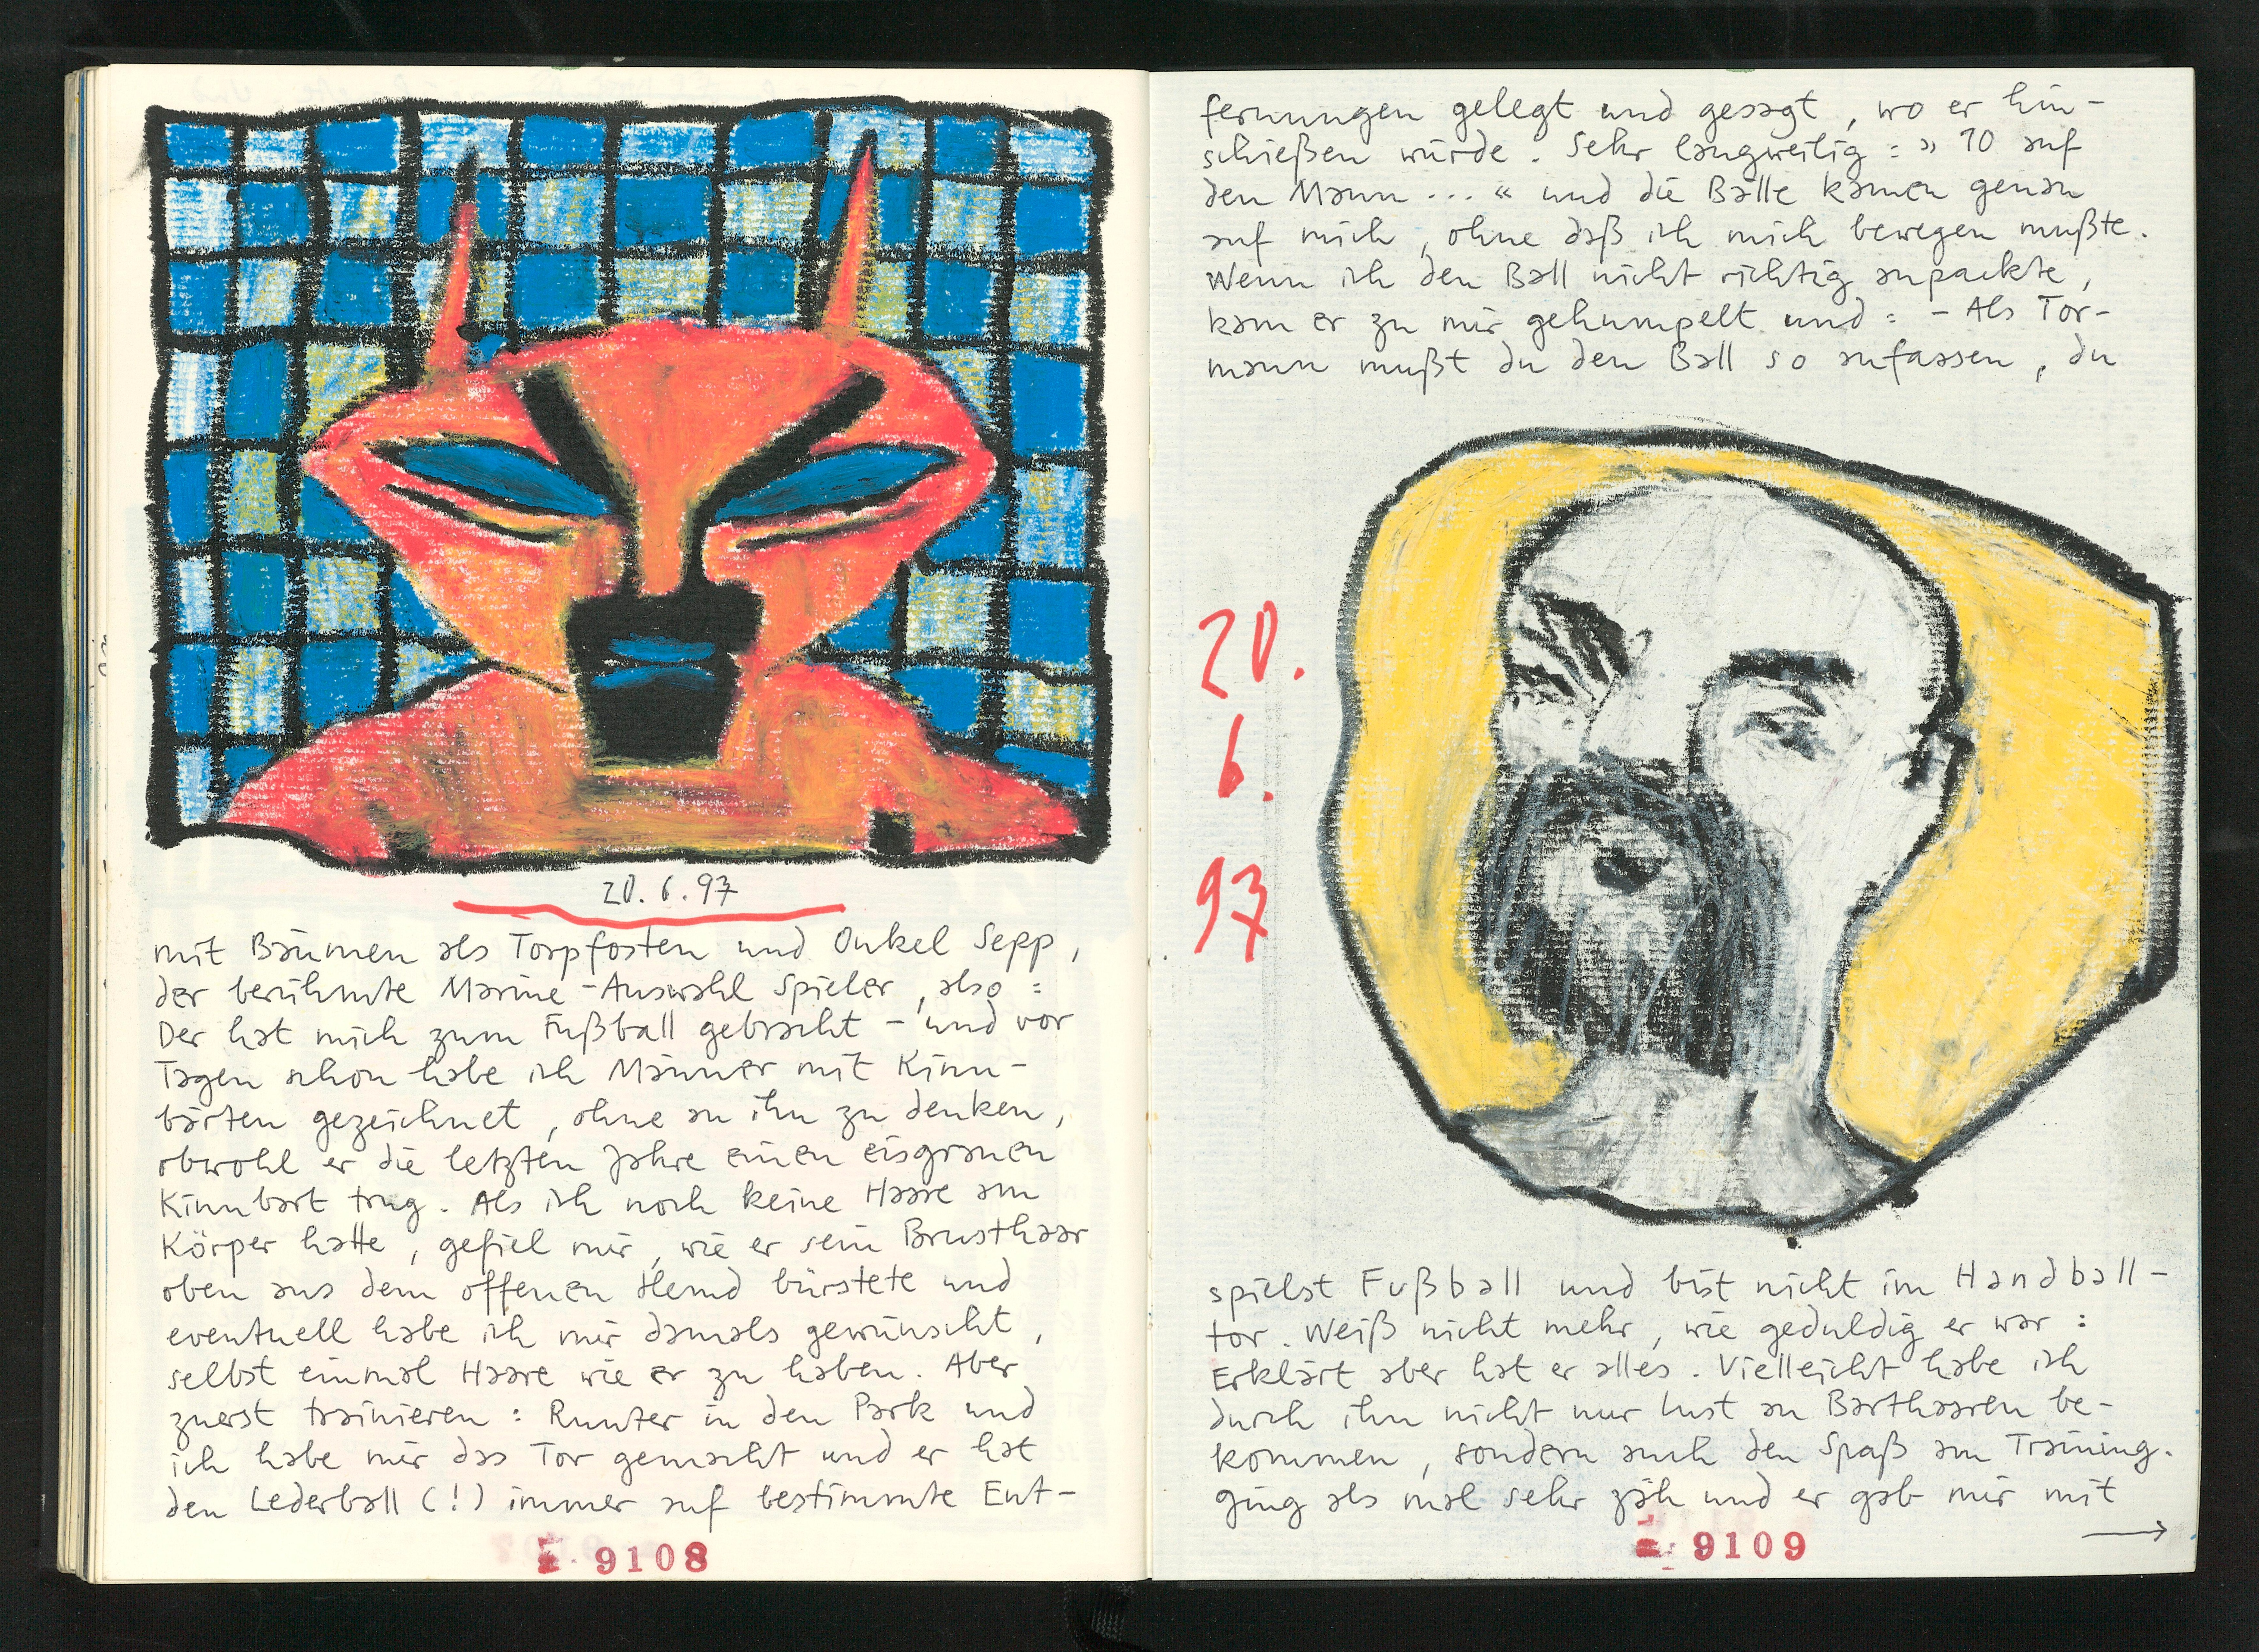 20.6.97
mit Bäumen als Torpfosten und Onkel Sepp,
der berühmte Marine-Auswahl Spieler, also:
Der hat mich zum Fußball gebracht – und vor
Tagen schon habe ich Männer mit Kinn-
bärten gezeichnet, ohne an ihn zu denken,
obwohl er die letzten Jahre einen eisgrauen
Kinnbart trug. Als ich noch keine Haare am
Körper hatte, gefiel mir, wie er sein Brusthaar
oben aus dem offenen Hemd bürstete und
eventuell habe ich mir damals gewünscht,
selbst einmal Haare wie er zu haben. Aber
zuerst trainieren: Runter in den Park und
ich habe mir das Tor gemacht und er hat
den Lederball (!) immer auf bestimmte Ent-
9108
fernungen gelegt und gesagt, wo er hin-
schießen würde. Sehr langweilig: »10 auf
den Mann...« und die Bälle kamen genau
auf mich, ohne daß ich mich bewegen mußte.
Wenn ich den Ball nicht richtig anpackte,
kam er zu mir gehumpelt und: – Als Tor-
mann mußt du den Ball so anfassen, du
20.
6.
97
spielst Fußball und bist nicht im Handball-
tor. Weiß nicht mehr, wie geduldig er war:
Erklärt aber hat er alles. Vielleicht habe ich
durch ihn nicht nur Lust an Barthaaren be-
kommen, sondern auch den Spaß am Training.
Ging als mal sehr zäh und er gab mir mit
→
9109